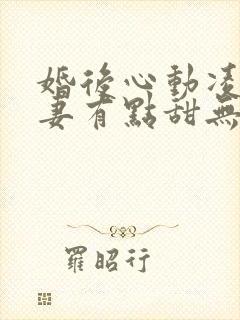 婚後心動凌
妻有點甜無
羅昭行